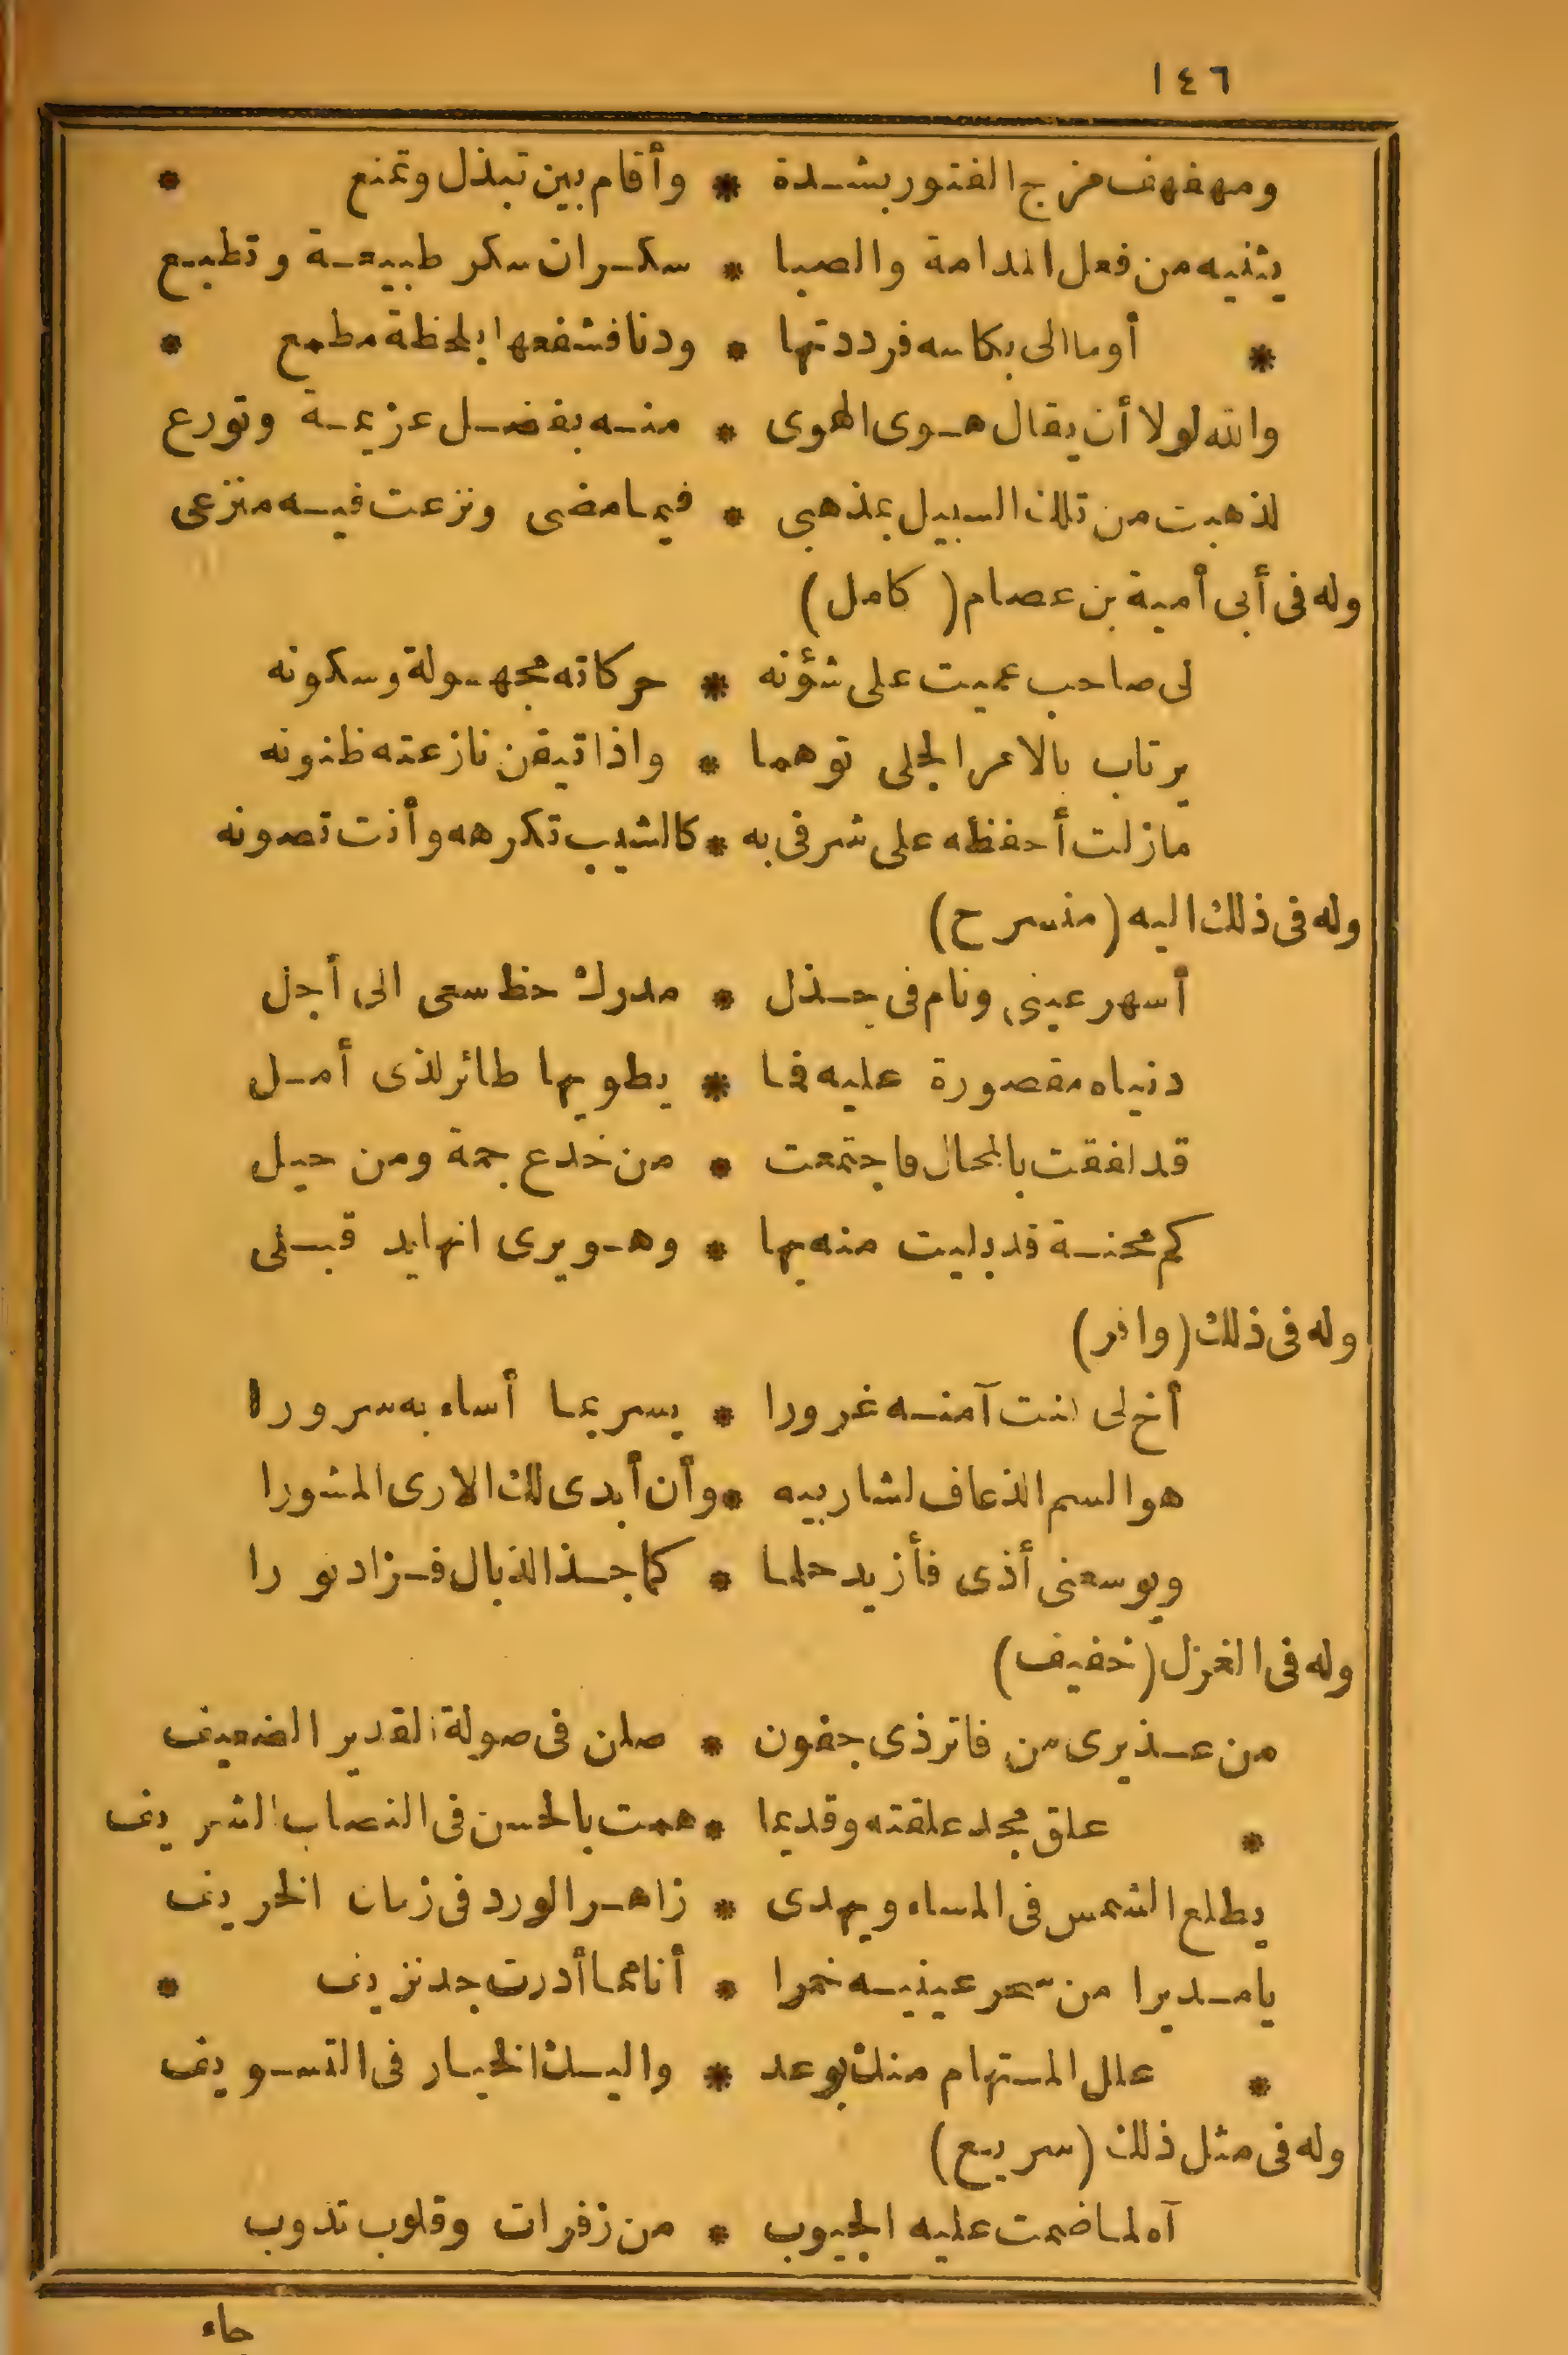 ١٤٦
ومهفهف مزج الفتور بشدة * وأقام بين تبذل وتمنع *
يثنيه من فعل المدامة والصبا * سكران سكر طبيعة وتطبع
* أوما الى بكاسه فرددتها * ودنا فشفعها بلحظة مطمع *
والله لولا أن يقال هوى الهوى * منه بفضل عزيمة وتورع
لذهبت من تلك السبيل بمذهبى * فيما مضى ونزعت فيه منزعى
وله فى أبى أمية بن عصام (كامل)
لى صاحب عميت على شؤنه * حركاته مجهولة وسكونه
يرتاب بالامر الجلى توهما * واذا تيقن نازعته ظنونه
مازلت أحفظه على شرفى به * كالشيب تكرهه وأنت تصونه
وله فى ذلك اليه (منسرح)
أسهر عينى ونام فى جذل * مدرك حظ سعى الى أجل
دنياه مقصورة عليه فما * يطويها طائر لذى أمل
قد لفقت بالمحال فاجتمعت * من خدع جمة ومن حيل
كم محنة قد بليت منه بها * وهو يرى انها يد قبلى
وله فى ذلك (وافر)
أخ لى كنت آمنه غرورا * يسر بما أساء به سرورا
هو السم الذعاف لشاربيه * وأن أبدى لك الارى المشورا
ويوسعنى أذى فأزيد حلما * كما جذ الذبال فزاد نورا
وله فى الغزل (خفيف)
من عذيرى من فاتر ذى جفون * صلن فى صولة القدير الضعيف
* علق مجد علقته وقديما * همت بالحسن فى النصاب الشريف
يطلع الشمس فى المساء ويهدى * زاهر الورد فى زمان الخريف
يا مديرا من سحر عينيه خمرا * أنا مما أدرت جد نزيف *
* علل المستهام منك بوعد * واليك الخيار فى التسويف
وله فى مثل ذلك (سريع)
آه لما ضمت عليه الجيوب * من زفرات وقلوب تذوب
جاء